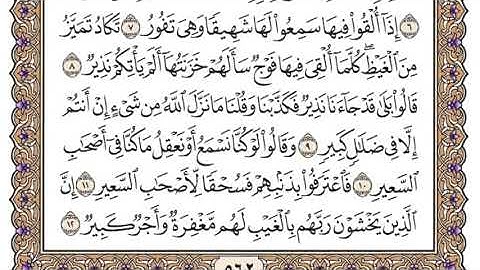 ٦ إِذَآ أُلْقُوا۟ فِيهَا سَمِعُوا۟ لَهَا شَهِيقًا وَهِىَ تَفُورُ ٧ تَكَادُ تَمَيَّزُ
مِنَ ٱلْغَيْظِ ۖ كُلَّمَآ أُلْقِىَ فِيهَا فَوْجٌ سَأَلَهُمْ خَزَنَتُهَآ أَلَمْ يَأْتِكُمْ نَذِيرٌ ٨
قَالُوا۟ بَلَىٰ قَدْ جَآءَنَا نَذِيرٌ فَكَذَّبْنَا وَقُلْنَا مَا نَزَّلَ ٱللَّهُ مِن شَىْءٍ إِنْ أَنتُمْ
إِلَّا فِى ضَلَـٰلٍ كَبِيرٍ ٩ وَقَالُوا۟ لَوْ كُنَّا نَسْمَعُ أَوْ نَعْقِلُ مَا كُنَّا فِىٓ أَصْحَـٰبِ
ٱلسَّعِيرِ ١٠ فَٱعْتَرَفُوا۟ بِذَنۢبِهِمْ فَسُحْقًا لِّأَصْحَـٰبِ ٱلسَّعِيرِ ١١ إِنَّ
ٱلَّذِينَ يَخْشَوْنَ رَبَّهُم بِٱلْغَيْبِ لَهُم مَّغْفِرَةٌ وَأَجْرٌ كَبِيرٌ ١٢
٥٦٢